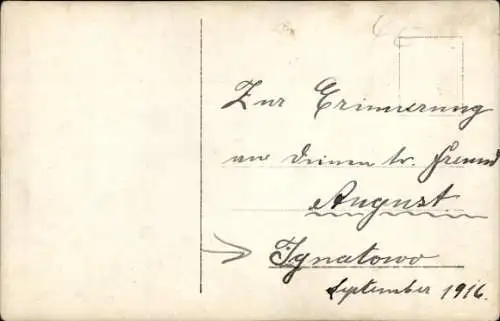 Zur Erinnerung
an deinen tr. Freund
August
Ignatowo
September 1916.